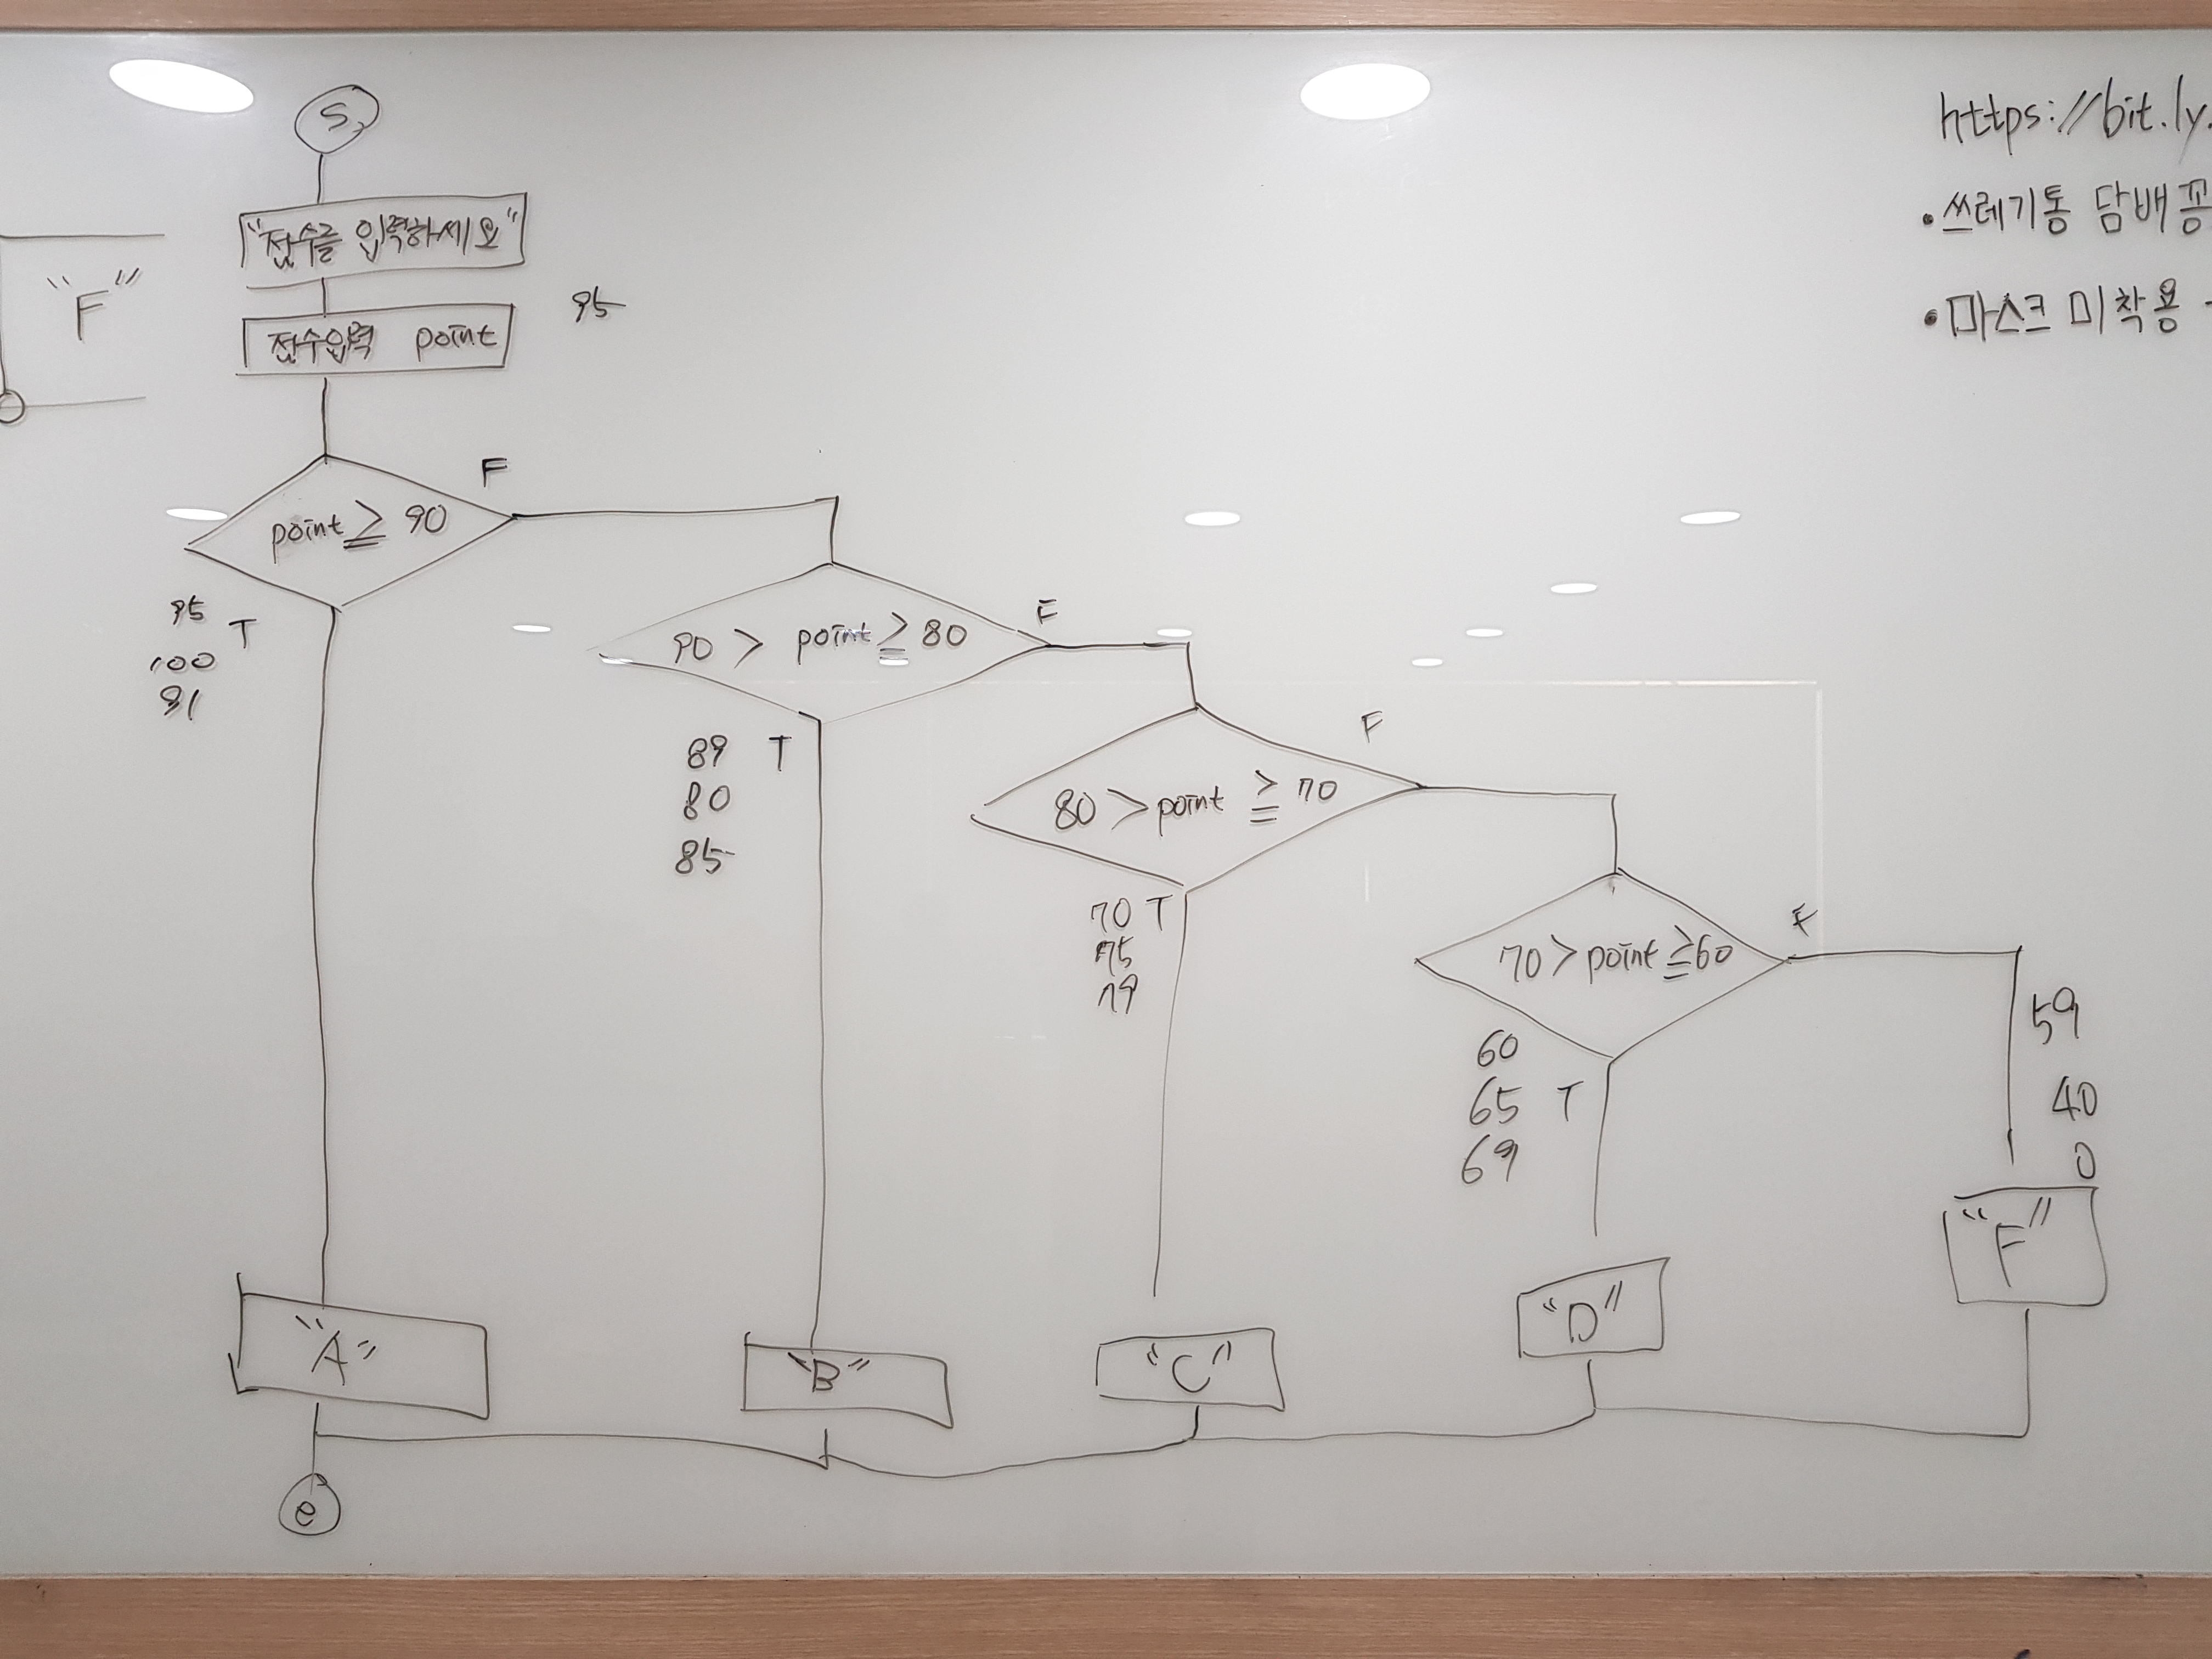 S
"점수를 입력하세요"
점수입력 point
95
"F"
point ≥ 90
F
T
95
100
91
90 > point ≥ 80
F
T
89
80
85
80 > point ≥ 70
F
T
70
75
79
70 > point ≥ 60
F
T
60
65
69
59
40
0
"A"
"B"
"C"
"D"
"F"
e
https://bit.ly.
• 쓰레기통 담배꽁
• 마스크 미착용